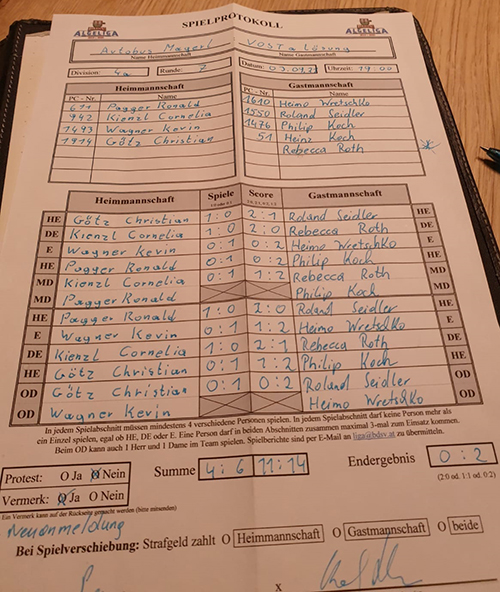 SPIELPROTOKOLL
Autobus Mayerl VOSTa Lösung
Name Heimmannschaft Name Gastmannschaft
Division: 4a Runde: 7 Datum: Uhrzeit: 19:00
Heimmannschaft Gastmannschaft
PC - Nr. Name PC - Nr. Name
611 Pagger Ronald 1610 Heimo Wretschko
942 Kienzl Cornelia 1550 Roland Seidler
1493 Wagner Kevin 1476 Philip Koch
1914 Götz Christian 51 Heinz Koch
Rebecca Roth
Heimmannschaft Spiele Score Gastmannschaft
HE Götz Christian 1:0 2:1 Roland Seidler HE
DE Kienzl Cornelia 1:0 2:0 Rebecca Roth DE
E Wagner Kevin 0:1 0:2 Heimo Wretschko E
HE Pagger Ronald 0:1 0:2 Philip Koch HE
MD Kienzl Cornelia 0:1 1:2 Rebecca Roth MD
MD Pagger Ronald Philip Koch MD
HE Pagger Ronald 1:0 2:0 Roland Seidler HE
E Wagner Kevin 0:1 1:2 Heimo Wretschko E
DE Kienzl Cornelia 1:0 2:1 Rebecca Roth DE
HE Götz Christian 0:1 1:2 Philip Koch HE
OD Götz Christian 0:1 0:2 Roland Seidler OD
OD Wagner Kevin Heimo Wretschko OD
In jedem Spielabschnitt müssen mindestens 4 verschiedene Personen spielen. In jedem Spielabschnitt darf keine Person mehr als
ein Einzel spielen, egal ob HE, DE oder E. Eine Person darf in beiden Abschnitten zusammen maximal 3-mal zum Einsatz kommen.
Beim OD kann auch 1 Herr und 1 Dame im Team spielen. Spielberichte sind per E-Mail an liga@bdsv.at zu übermitteln.
Protest: O Ja O Nein Summe 4:6 11:14 Endergebnis 0:2
Vermerk: O Ja O Nein (2:0 od. 1:1 od. 0:2)
Ein Vermerk kann auf der Rückseite gemacht werden (bitte umseitig)
Neuanmeldung
Bei Spielverschiebung: Strafgeld zahlt O Heimmannschaft O Gastmannschaft O beide
x